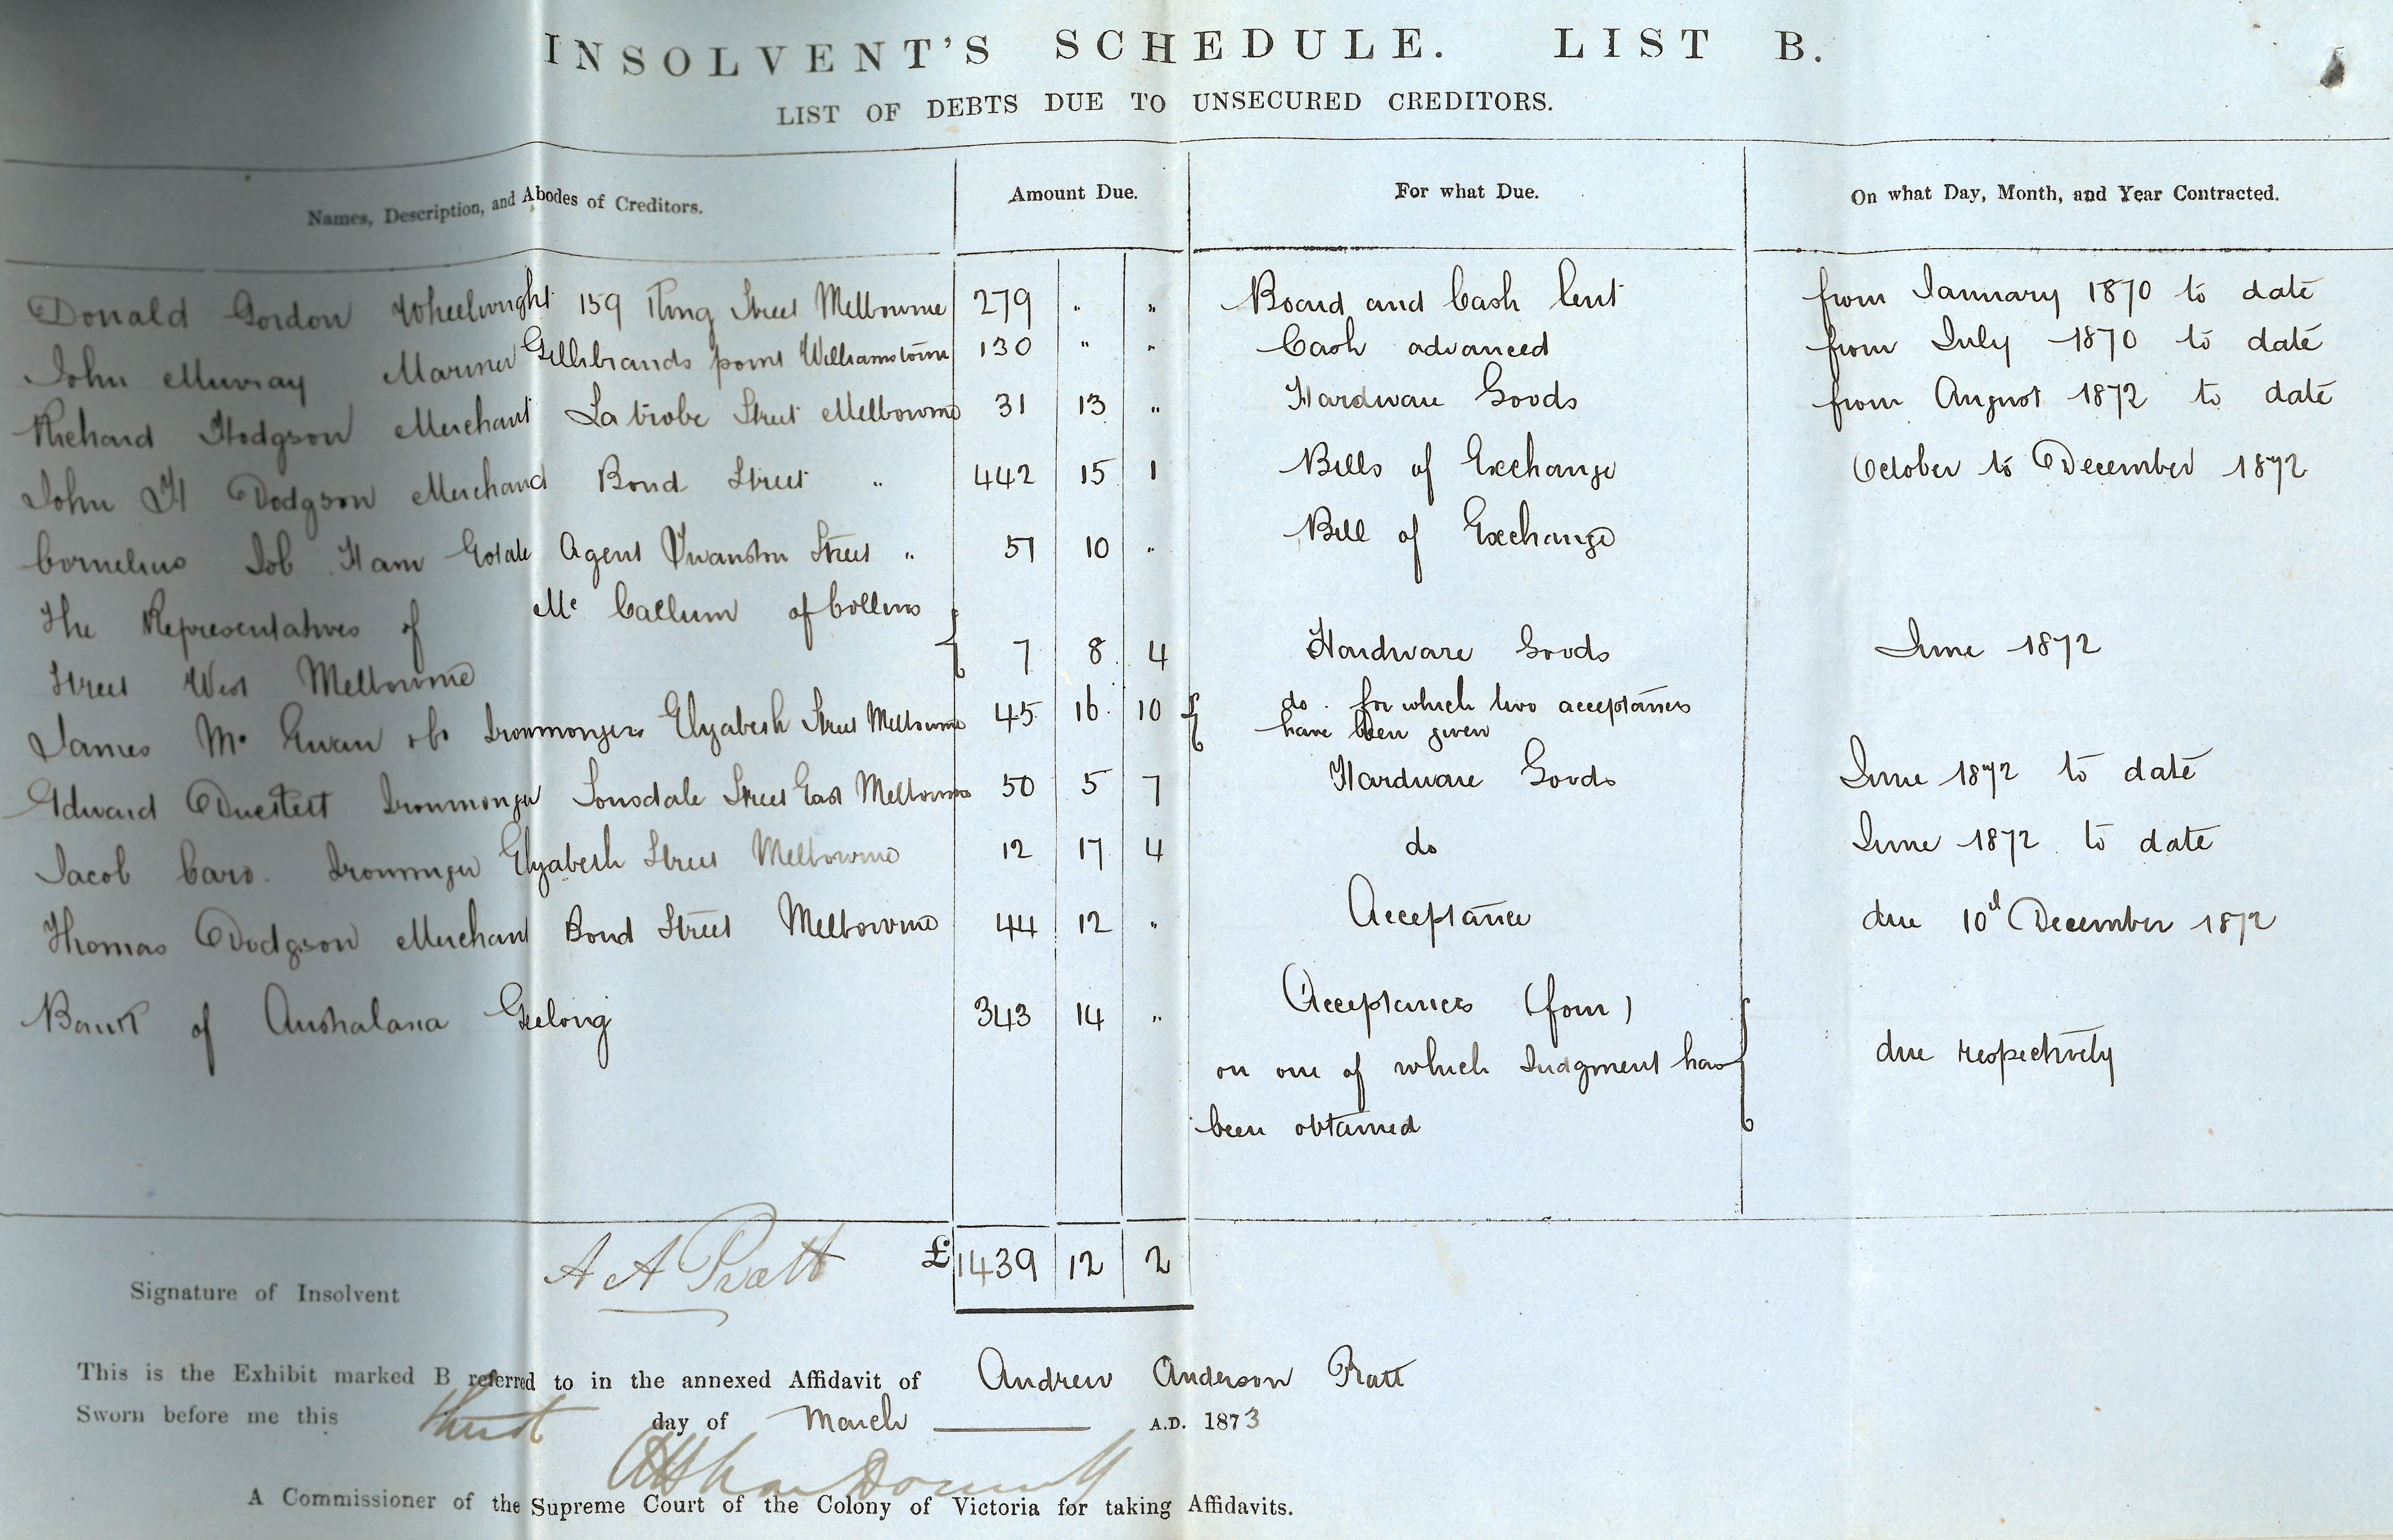 INSOLVENT'S SCHEDULE. LIST B.
LIST OF DEBTS DUE TO UNSECURED CREDITORS.
Names, Description, and Abodes of Creditors. Amount Due. For what Due. On what Day, Month, and Year Contracted.
Donald Gordon Wheelwright 159 King Street Melbourne 279 " " Board and Cash lent from January 1870 to date
John Murray Mariner Gellibrands point Williamstown 130 " " Cash advanced from July 1870 to date
Richard Hodgson Merchant Latrobe Street Melbourne 31 13 " Hardware Goods from August 1872 to date
John H Dodgson Merchant Bond Street " 442 15 1 Bills of Exchange October to December 1872
Cornelius Job Ham Estate Agent Swanston Street " 51 10 " Bill of Exchange
The Representatives of Mc Callum of Collins
Street West Melbourne 7 8 4 Hardware Goods June 1872
James Mc Ewan & Co Ironmongers Elizabeth Street Melbourne 45 16 10 do. for which two acceptances
have been given
Edward Ironmonger Lonsdale Street East Melbourne 50 5 7 Hardware Goods June 1872 to date
Jacob Caro. Ironmonger Elizabeth Street Melbourne 12 17 4 do June 1872 to date
Thomas Dodgson Merchant Bond Street Melbourne 44 12 " Acceptance due 10th December 1872
Bank of Australasia Geelong 343 14 " Acceptances (four)
on one of which Judgment has due respectively
been obtained
Signature of Insolvent A A Pratt £ 1439 12 2
This is the Exhibit marked B referred to in the annexed Affidavit of Andrew Anderson Pratt
Sworn before me this first day of March A.D. 1873
A Commissioner of the Supreme Court of the Colony of Victoria for taking Affidavits.